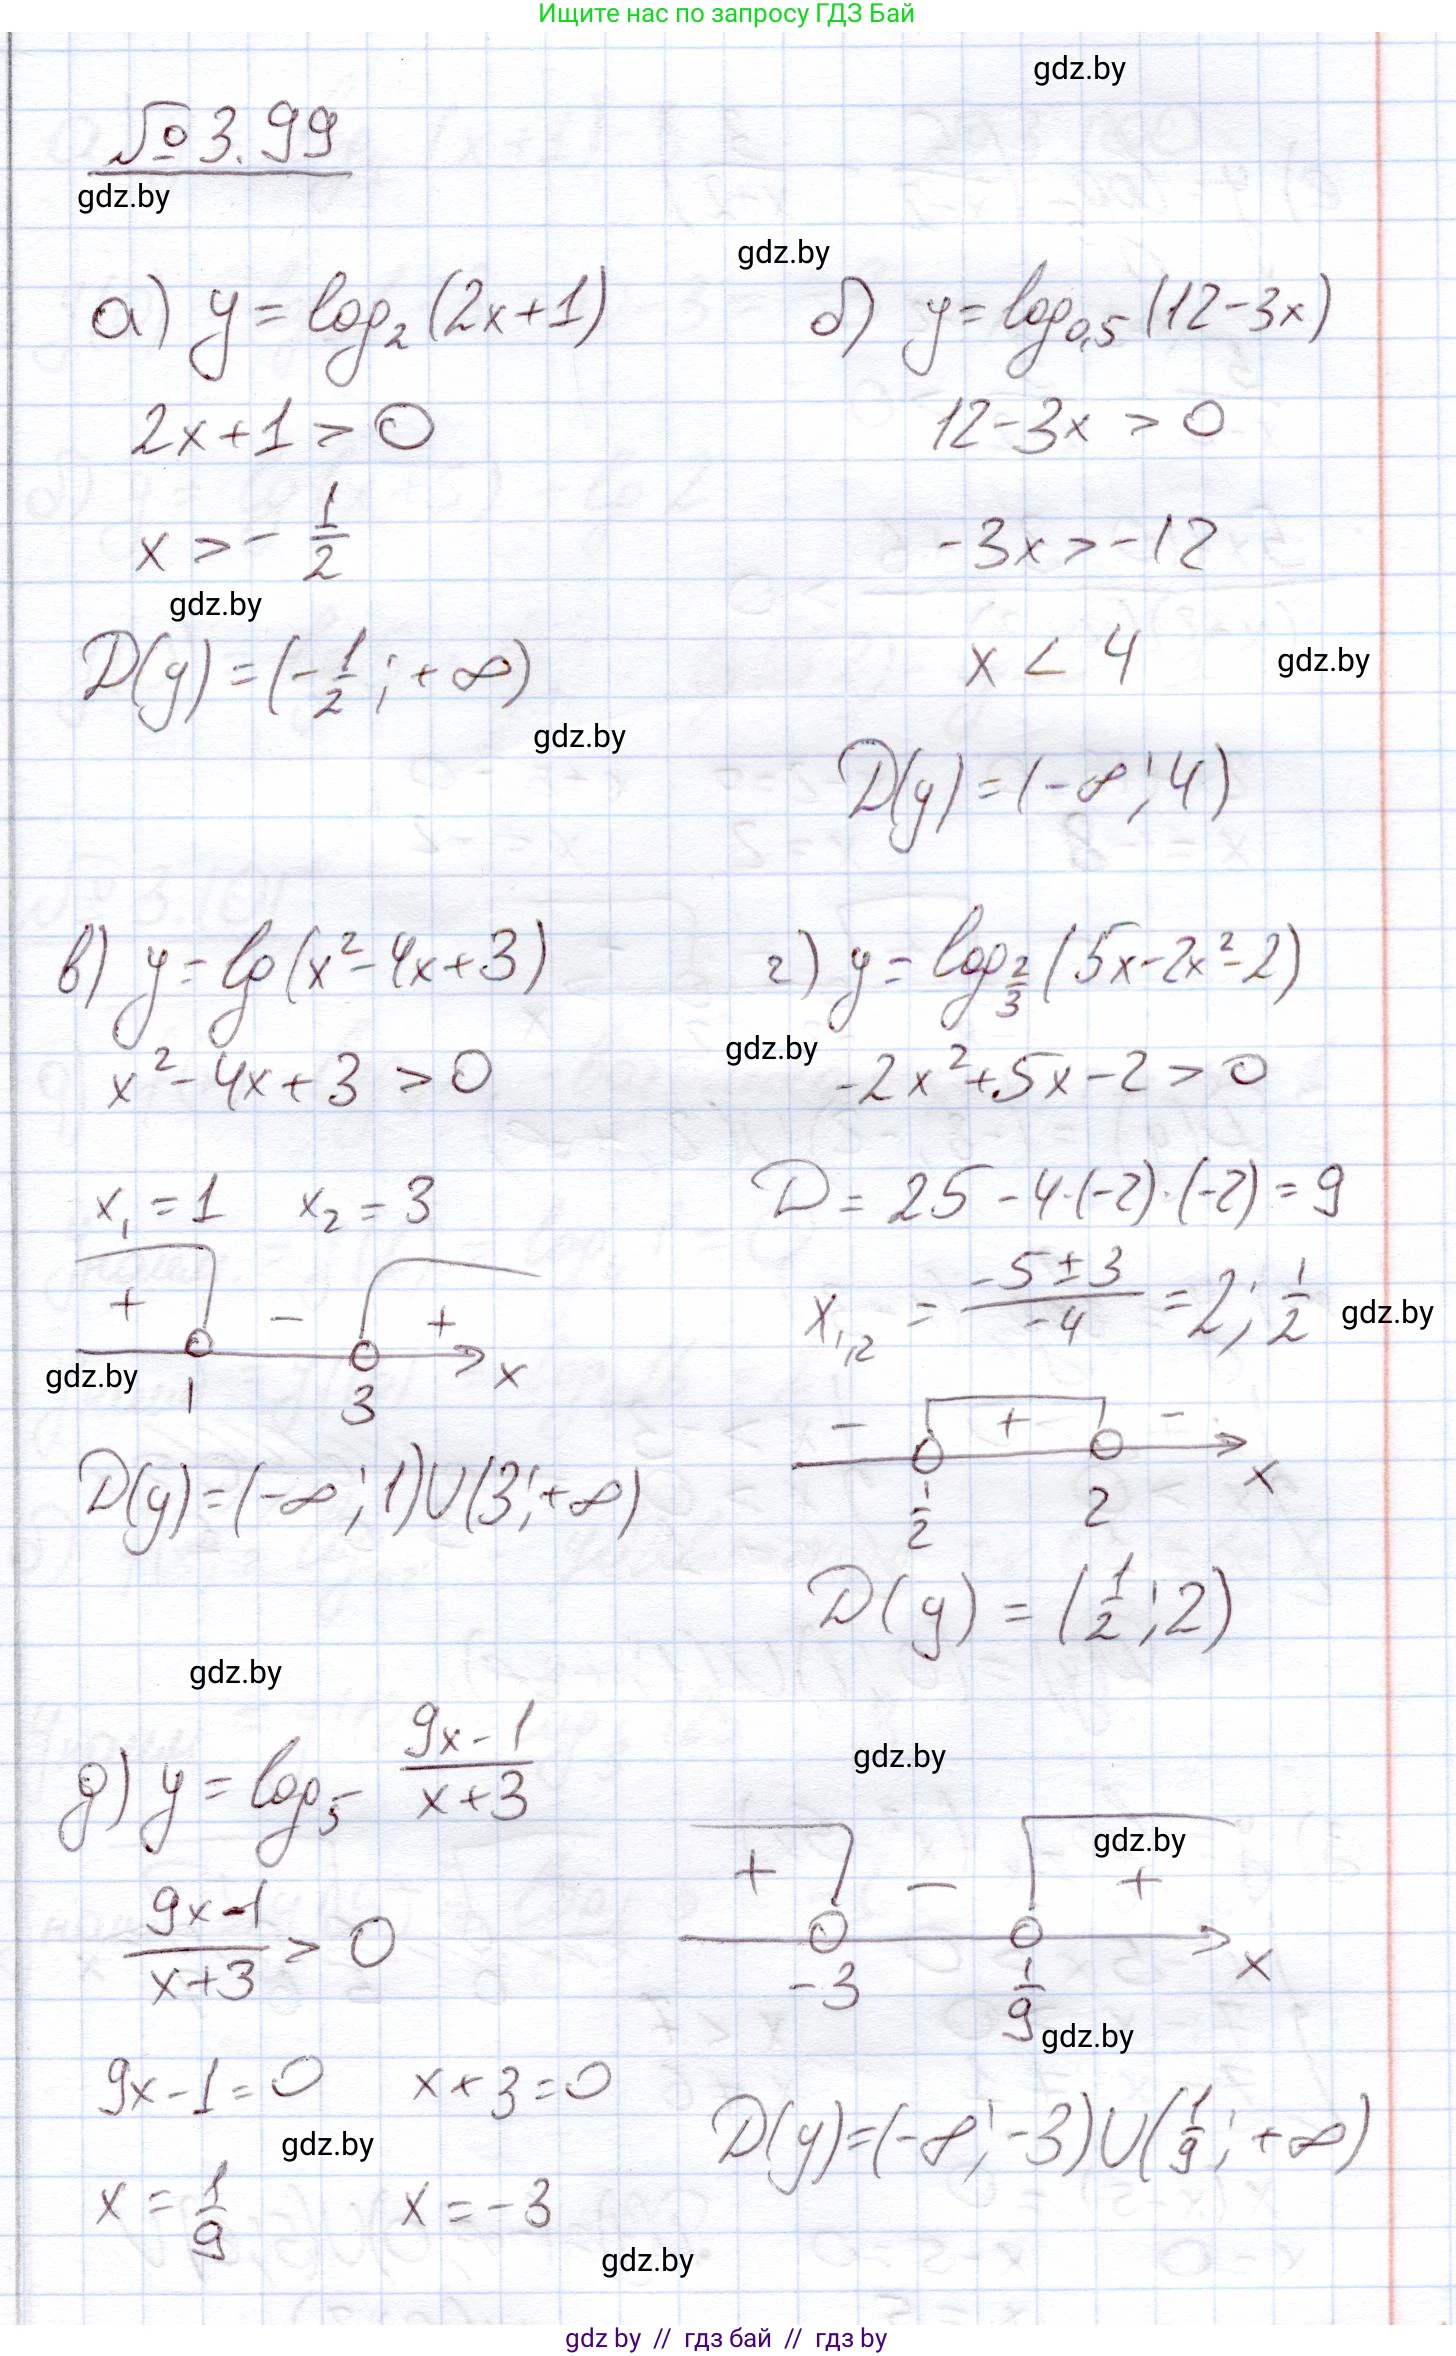 Ищите нас по запросу ГДЗ Бай
gdz.by
№ 3.99
gdz.by
gdz.by
а) y = log₂ (2x+1)
2x+1 > 0
x > - 1/2
gdz.by
D(y) = (-1/2; +∞)
gdz.by
б) y = log₀,₅ (12-3x)
12-3x > 0
-3x > -12
x < 4
gdz.by
D(y) = (-∞; 4)
в) y = lg(x²-4x+3)
x²-4x+3 > 0
x₁ = 1 x₂ = 3
+ - +
1 3 x
gdz.by
D(y) = (-∞; 1)∪(3; +∞)
г) y = log_2/3 (5x-2x²-2)
gdz.by
-2x²+5x-2 > 0
D = 25-4·(-2)·(-2) = 9
x₁,₂ = (-5±3)/(-4) = 2; 1/2
gdz.by
- + -
1/2 2 x
D(y) = (1/2; 2)
gdz.by
д) y = log₅ (9x-1)/(x+3)
(9x-1)/(x+3) > 0
9x-1=0 x+3=0
gdz.by
x = 1/9 x = -3
gdz.by
gdz.by
gdz.by
+ - +
-3 1/9 x
gdz.by
D(y)=(-∞; -3)∪(1/9; +∞)
gdz by // гдз бай // гдз by